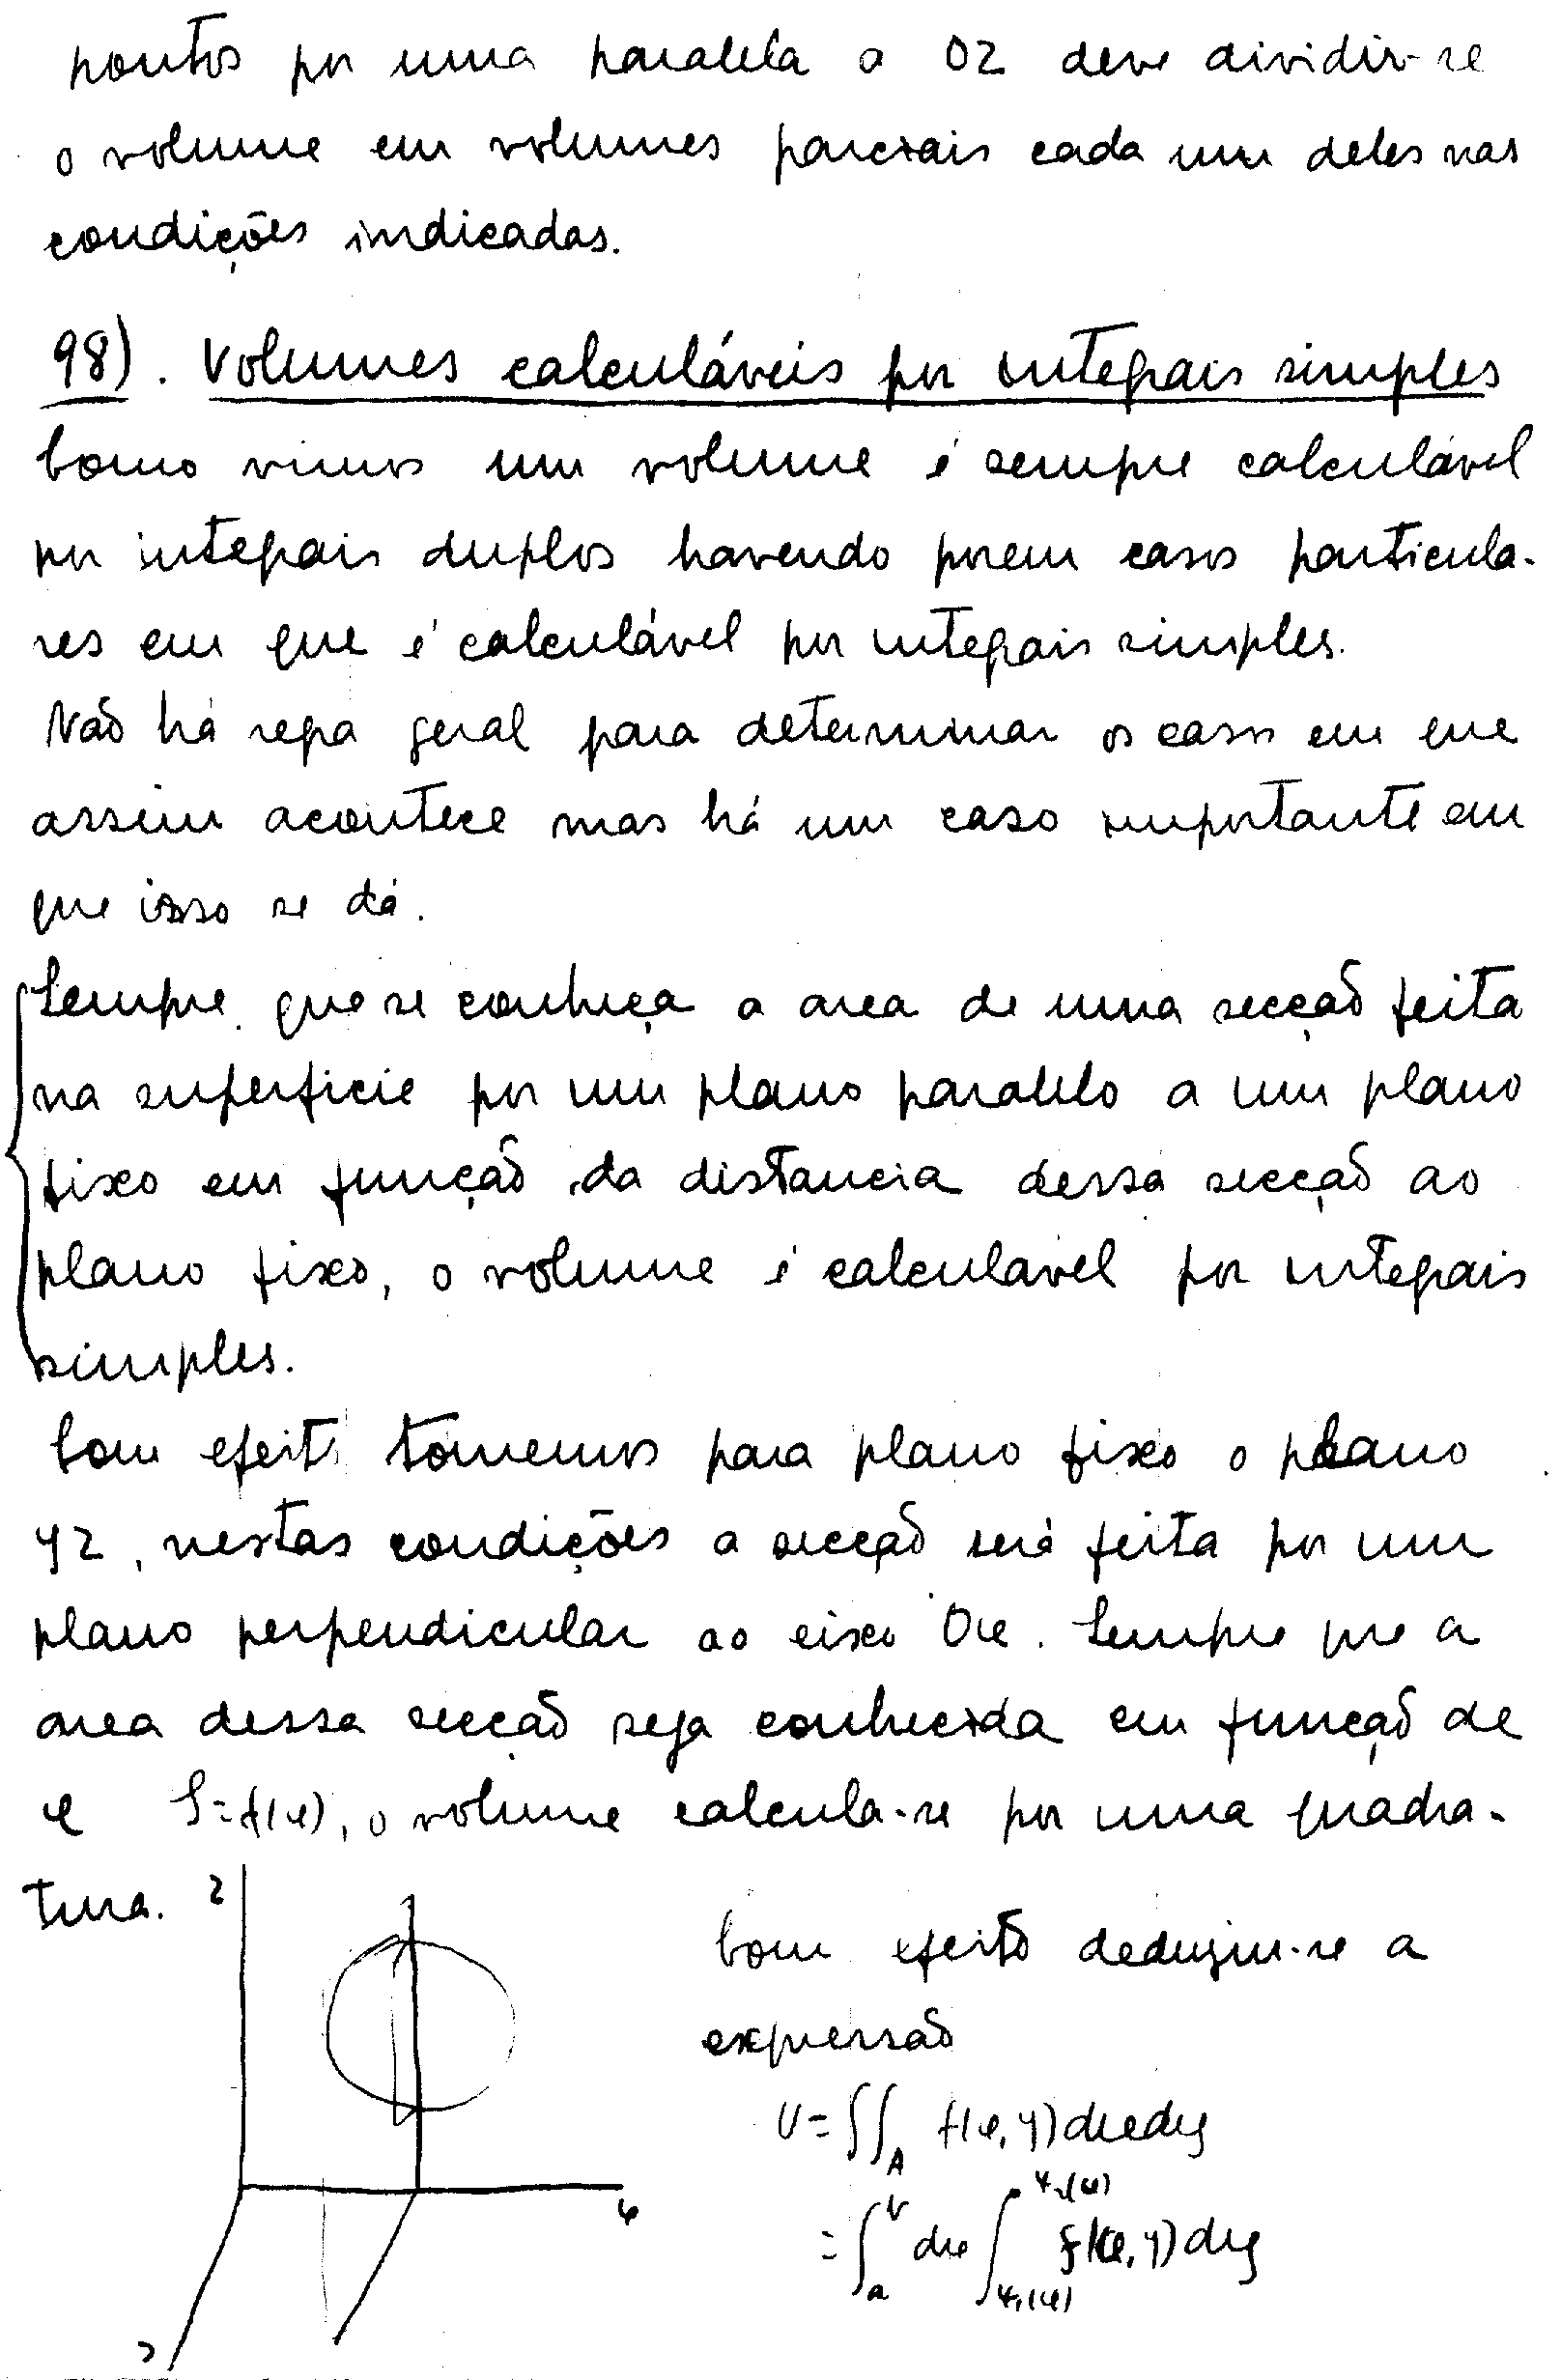 pontos por uma paralela a OZ deve dividir-se
o volume em volumes parciais cada um deles nas
condições indicadas.
98). Volumes calculáveis por integrais simples
Como vimos um volume é sempre calculável
por integrais duplos havendo porem casos particula-
res em que é calculável por integrais simples.
Não há regra geral para determinar os casos em que
assim acontece mas há um caso importante em
que isso se dá.
Sempre que se conheça a area de uma secção feita
na superficie por um plano paralelo a um plano
fixo em função da distancia dessa secção ao
plano fixo, o volume é calculavel por integrais
simples.
Com efeito tomemos para plano fixo o plano
yz, nestas condições a secção será feita por um
plano perpendicular ao eixo Ox. Sempre que a
area dessa secção seja conhecida em função de
x S=f(x), o volume calcula-se por uma quadra-
tura. z
Com efeito deduziu-se a
expressão
V=∫∫_A f(x,y)dxdy
=∫_a^b dx ∫_{ψ₁(x)}^{ψ₂(x)} f(x,y)dy
x
y